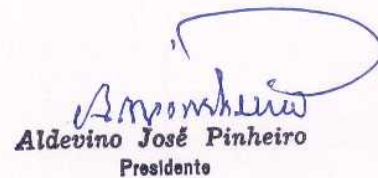 Aldevino José Pinheiro
Presidente